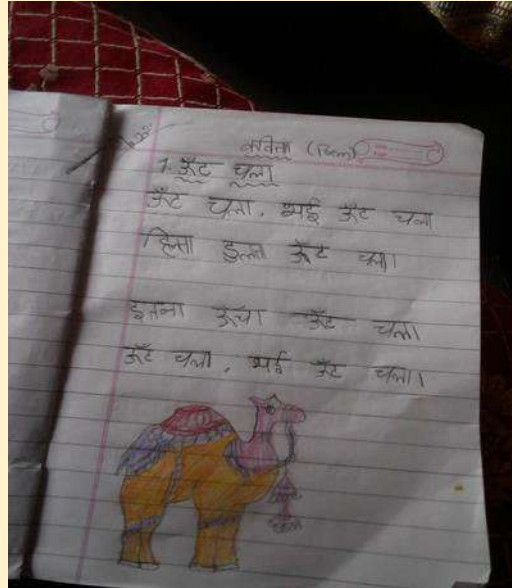 कविता
1. ऊँट चला
ऊँट चला, भई ऊँट चला
हिलता डुलता ऊँट चला।
इतना ऊँचा ऊँट चला
ऊँट चला, भई ऊँट चला।